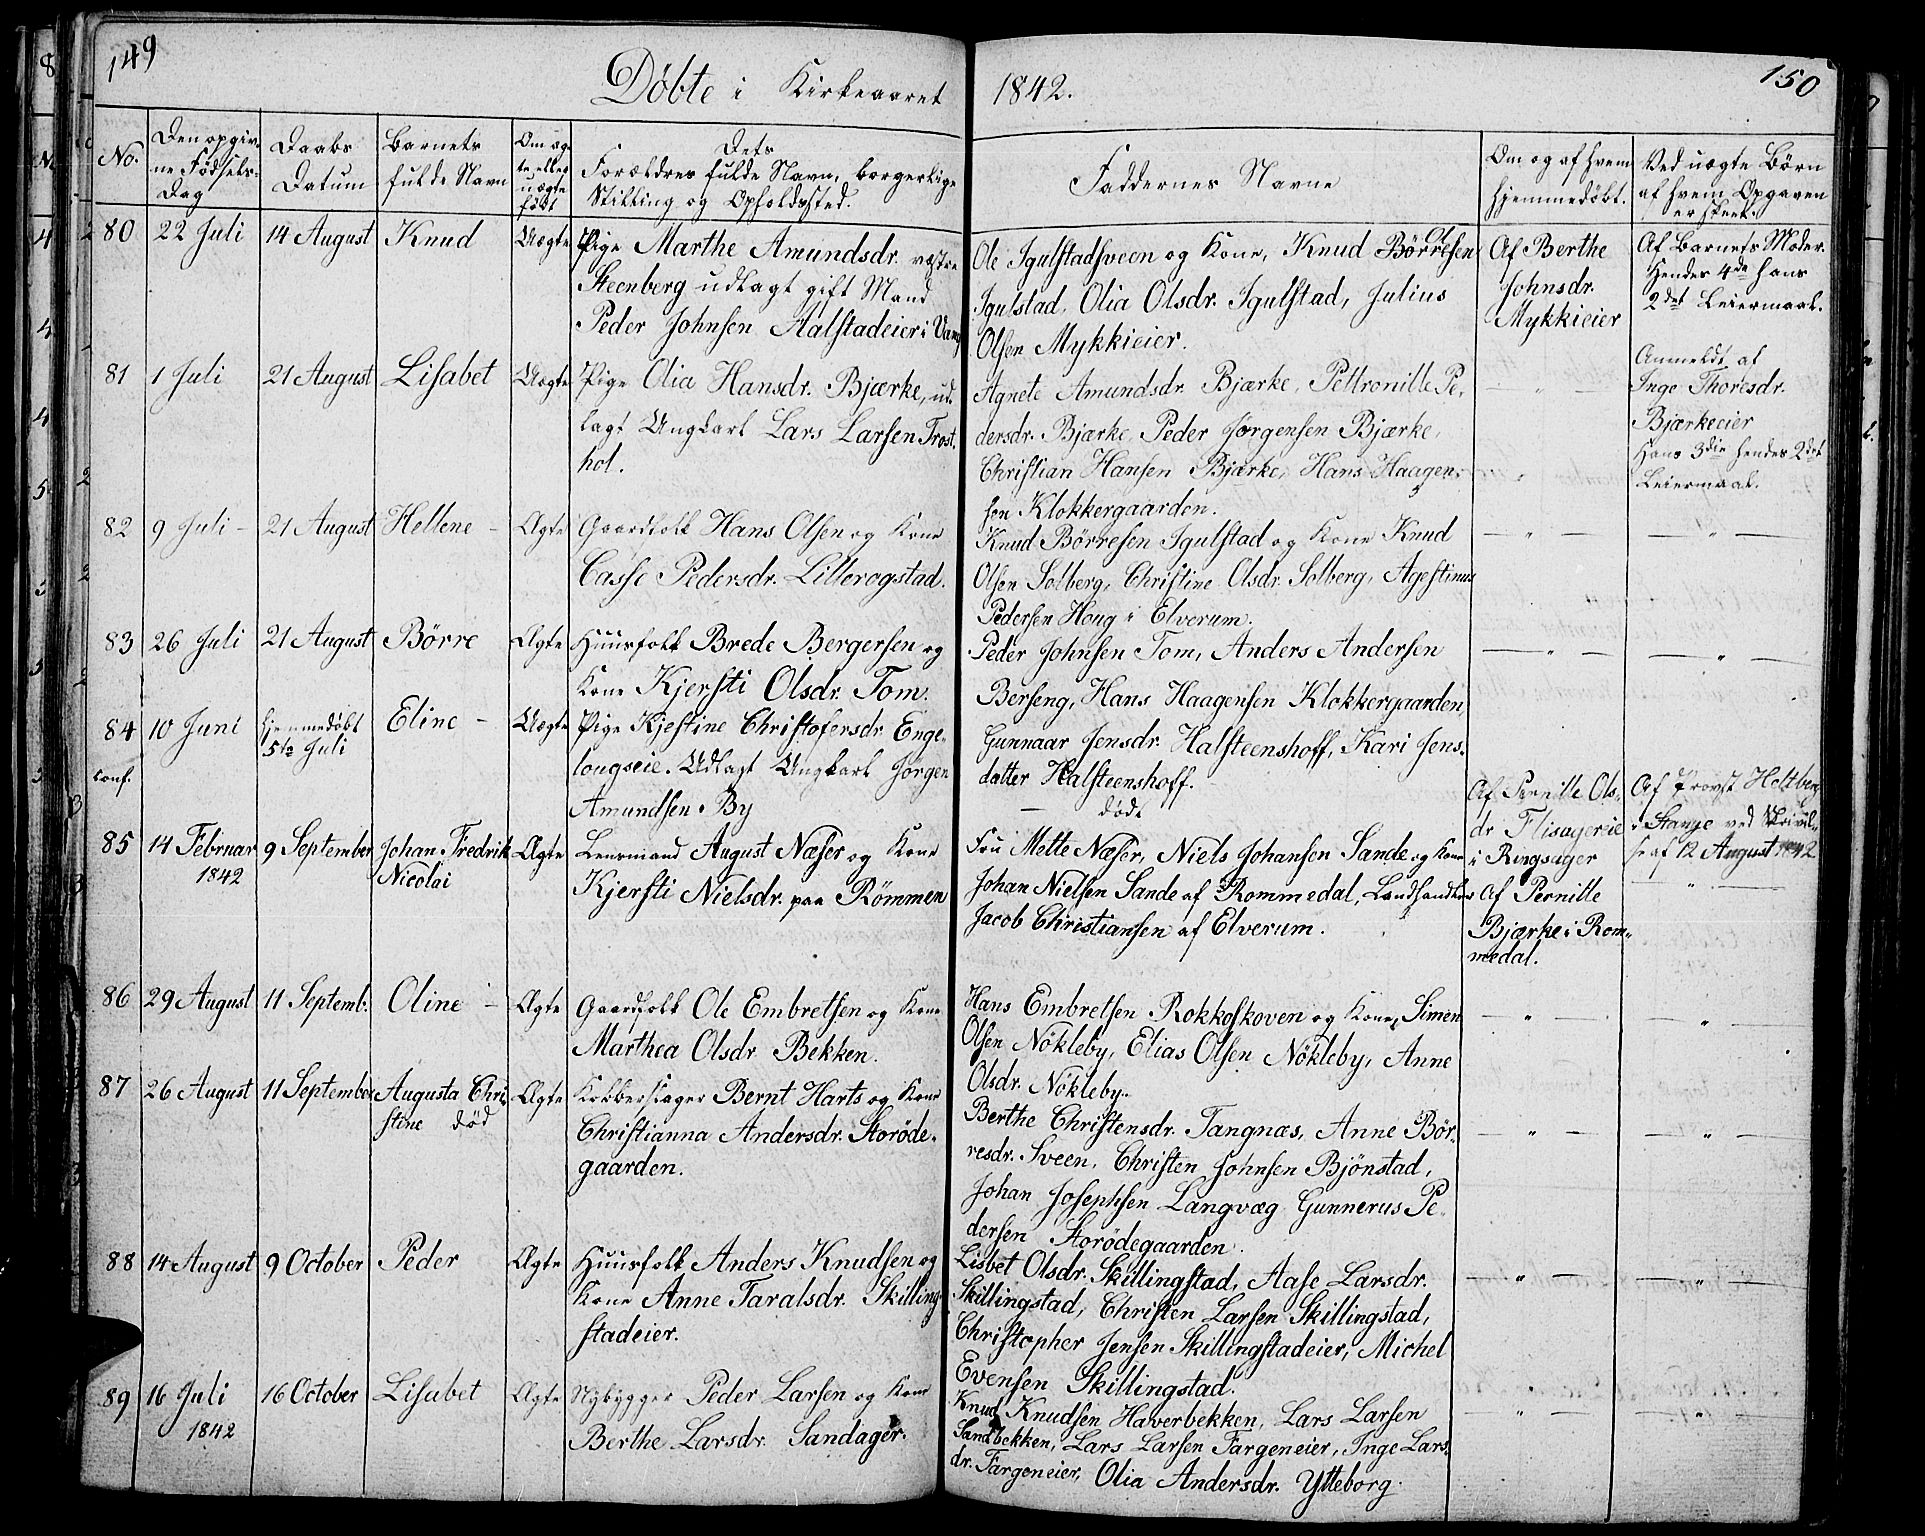 149
Döbte i Kirkeaaret 1842.
150
No.
Den opgiv-
ne Födsels-
Dag
Daabs
Datum
Barnets
fulde Navn
Om æg-
te eller
uægte
födt
Dets
Forældres fulde Navn, borgerlige
Stilling og Opholdssted.
Faddernes Navne
Om og af hvem
hjemmedöbt.
Ved uægte Börn
af hvem Opgaven
er skeet.
80 22 Juli 14 August Knud Uægte
Pige Marthe Amundsdr. vestre
Steenberg udlagt gift Mand
Peder Johnsen Aalstadeier i Vang
Ole Igulstadsveen og Kone, Knud Börresen
Igulstad, Olia Olsdr. Igulstad, Julius
Olsen Mykkieier.
Af Berthe
Johnsdr.
Mykkieier
Af Barnets Moder.
Hendes 4de hans
2det Leiermaal.
81 1 Juli 21 August Lisabet Uægte
Pige Olia Hansdr. Bjærke, ud-
lagt Ungkarl Lars Larsen Frost-
hol.
Agnete Amundsdr. Bjærke, Pettronille Pe-
dersdr. Bjærke, Peder Jörgensen Bjærke,
Christian Hansen Bjærke, Hans Haagen-
sen Klokkergaarden.
— „ —
Anmeldt af
Inge Thoresdr.
Bjærkeeier
Hans 3die hendes 2det
Leiermaal.
82 9 Juli - 21 August Hellene - Ægte
Gaardfolk Hans Olsen og Kone
Casse Pedersdr. Lillerogstad.
Knud Börresen Igulstad og Kone Knud
Olsen Solberg, Christine Olsdr. Solberg, Agestinus
Pedersen Houg i Elverum.
— „ — — „ —
83 26 Juli 21 August Börre Ægte
Huusfolk Brede Bergersen og
Kone Kjersti Olsdr. Tom.
Peder Johnsen Tom, Anders Andersen
Berseng, Hans Haagensen Klokkergaarden,
Gunnaar Jensdr. Halsteenshoff, Kari Jens-
datter Halsteenshoff.
— „ — — „ —
84 10 Juni hjemmedöbt
5te Juli
Eline - Uægte
conf.
Pige Kjestine Christofersdr. Enge-
lougseie. Udlagt Ungkarl Jörgen
Amundsen By
— död.
Af Pernille Ols-
dr. Flisagereie
i Ringsager
Af Provst Holtberg
i Stange ved Skrivel-
se af 12 August 1842
85 14 Februar
1842
9 September Johan Fredrik
Nicolai
Ægte
Lensmand August Næser og Kone
Kjersti Nielsdr. paa Römmen
Fru Mette Næser, Niels Johansen Sande og Kone
Johan Nielsen Sande af Rommedal, Landhandler
Jacob Christiansen af Elverum.
Af Pernille
Bjærke i Rom-
medal.
— „ —
86 29 August 11 Septemb. Oline - Ægte
Gaardfolk Ole Embretsen og Kone
Marthea Olsdr. Bekken.
Hans Embretsen Rokkoskoven og Kone, Simen
Olsen Nökleby, Elias Olsen Nökleby, Anne
Olsdr. Nökleby.
— „ — — „ —
87 26 August 11 September Augusta Chri-
stine död
Ægte
Kobberslager Bernt Harts og Kone
Christianna Andersdr. Storöde-
gaarden.
Berthe Christensdr. Tangnæs, Anne Bör-
resdr. Sveen, Christen Johnsen Bjönstad,
Johan Josephsen Langvæg Gunnerus Pe-
dersen Storödegaarden.
— „ — — „ —
88 14 August 9 October Peder Ægte
Huusfolk Anders Knudsen og
Kone Anne Taralsdr. Skilling-
stadeier.
Lisbet Olsdr. Skillingstad, Aase Larsdr.
Skillingstad, Christen Larsen Skillingstad,
Christopher Jensen Skillingstadeier, Michel
Evensen Skillingstad.
— „ — — „ —
89 16 Juli
1842
16 October Lisabet Ægte
Nybygger Peder Larsen og Kone
Berthe Larsdr. Sandager.
Knud Knudsen Haverbekken, Lars Larsen
Sandbekken, Lars Larsen Fargeneier, Inge Lars-
dr. Fargeneier, Olia Andersdr. Ytteborg.
„ — „ —